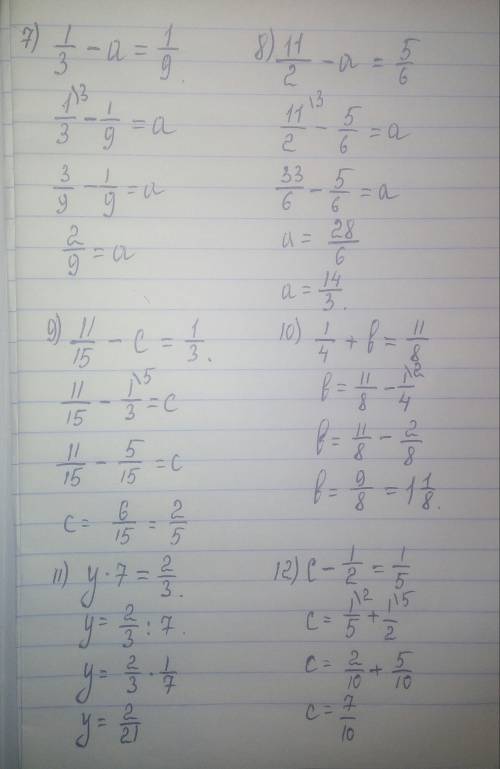 7) 1/3 - a = 1/9.
1\3/3 - 1/9 = a
3/9 - 1/9 = a
2/9 = a
8) 11/2 - a = 5/6
11\3/2 - 5/6 = a
33/6 - 5/6 = a
a = 28/6
a = 14/3.
9) 11/15 - c = 1/3.
11/15 - 1\5/3 = c
11/15 - 5/15 = c
c = 6/15 = 2/5
10) 1/4 + b = 11/8
b = 11/8 - 1\2/4
b = 11/8 - 2/8
b = 9/8 = 1 1/8.
11) y · 7 = 2/3.
y = 2/3 : 7.
y = 2/3 · 1/7
y = 2/21
12) c - 1/2 = 1/5
c = 1\2/5 + 1\5/2
c = 2/10 + 5/10
c = 7/10